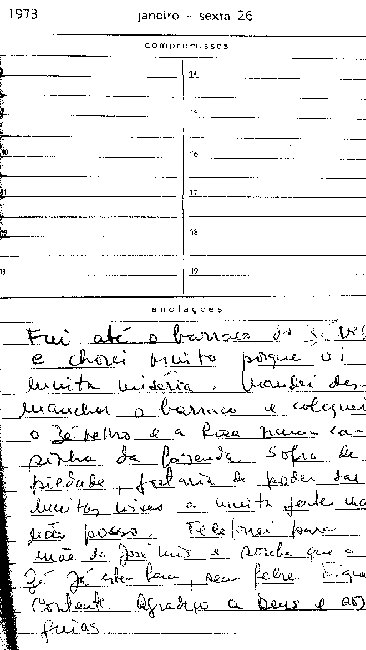 1973 janeiro - sexta 26
compromissos
14
15
10 16
11 17
18
13 19
anotações
Fui até o barraco do
e chorei muito porque vi
muita miséria. Mandei des-
manchar o barraco e coloquei
o Zé velho e a Rosa numa ca-
sinha da fazenda. Sofro de
piedade, gostaria de poder dar
muitas coisas a muita gente mas
não posso. Telefonei para
mãe do José Luis e soube que o
Zé já está bem, sem febre. Fiquei
contente. Agradeço a Deus e aos
guias